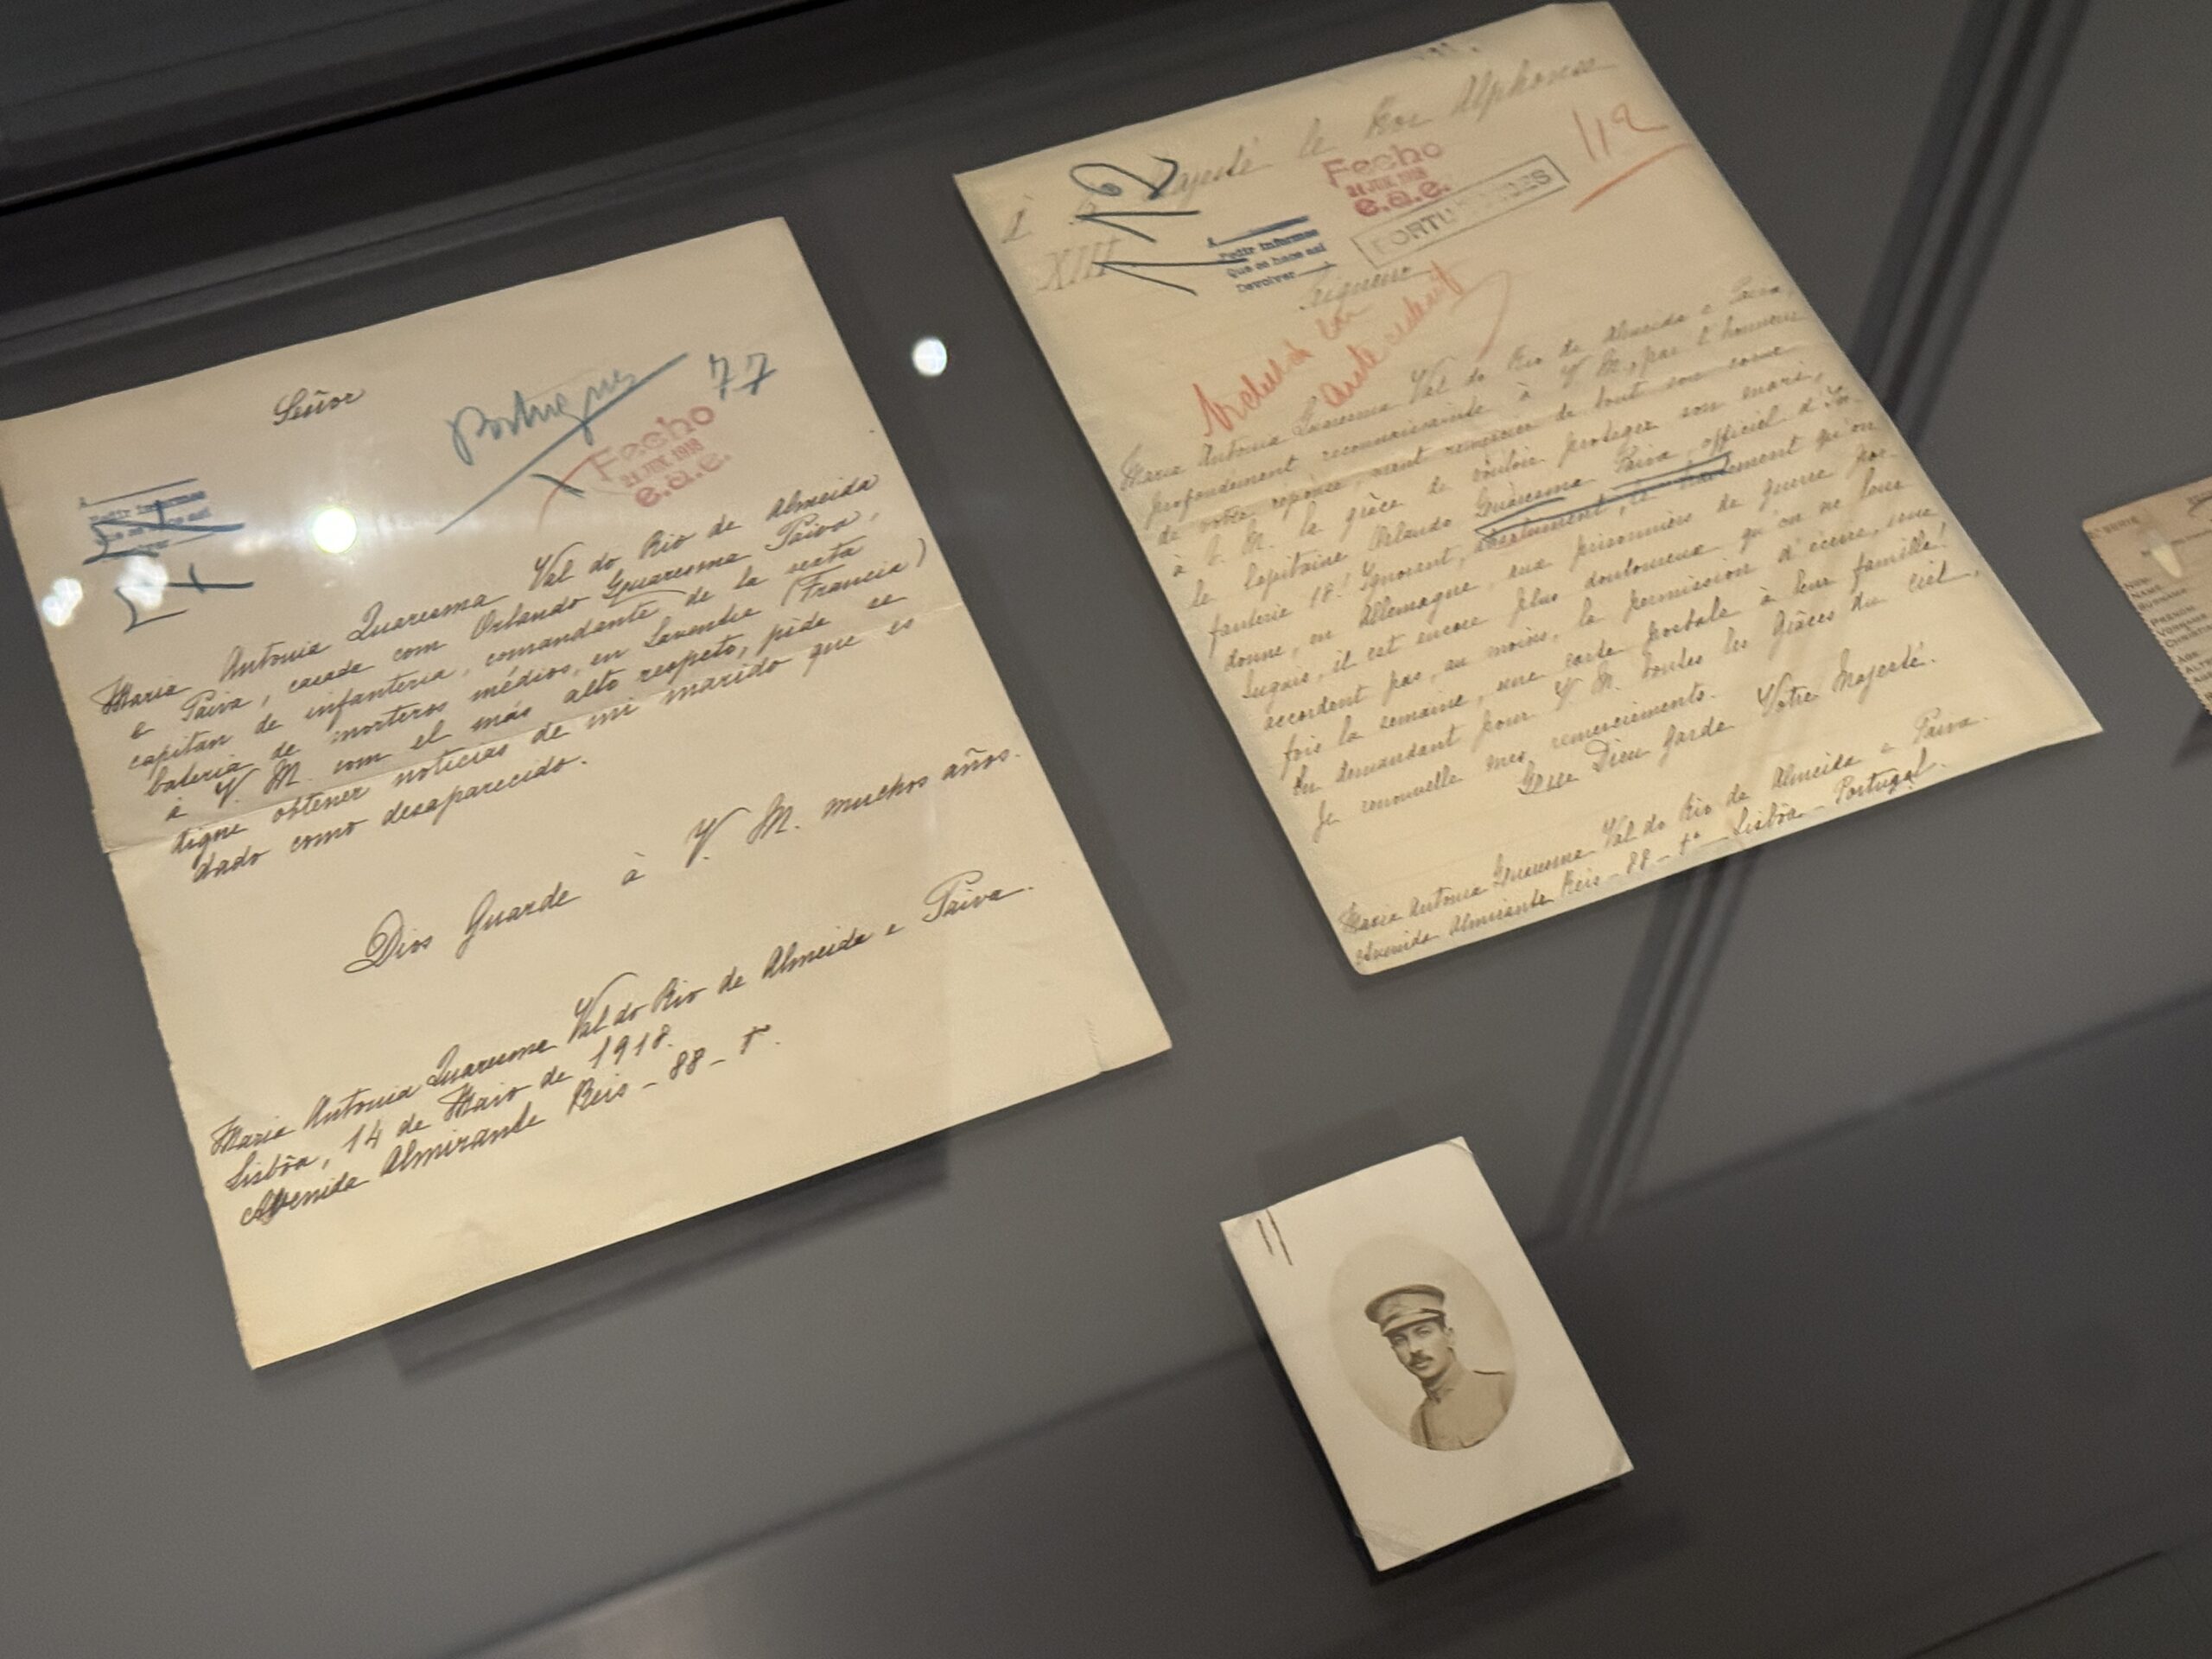 Señor
Portugues
77
Fecho
21 JUN. 1918
e.a.e.
Pedir informes
Que se hace asi
Maria Antonia Quaresma Val do Rio de Almeida
e Paiva, casada com Orlando Quaresma Paiva,
capitan de infanteria, comandante de la sexta
bateria de morteros médios, en Laventie (Francia)
à V. M. com el más alto respeto, pide se
digne obtener noticias de mi marido que es
dado como desaparecido.
Dios Guarde à V. M. muchos años.
Maria Antonia Quaresma Val do Rio de Almeida e Paiva.
Lisbôa, 14 de Maio de 1918.
Avenida Almirante Reis - 88 -
à
Majesté le Roi Alphonse
XIII
112
112
Fecho
21 JUN. 1918
e.a.e.
PORTUGUESES
Pedir informes
Que se hace asi
Devolver
Seigneur
Maria Antonia Quaresma Val do Rio de Almeida e Paiva,
profondément reconnaissante à V. M. par l'honneur
de votre reponse, vient remercier de tout son coeur
à V. M. la grâce de vouloir proteger son mari,
le Capitaine Orlando Quaresma Paiva, officiel d'In-
fanterie 18! Ignorent, absolument, le traitement qu'on
donne, en Allemagne, aux prisonniers de guerre por-
tugais, il est encore plus douloureux qu'on ne leur
accordent pas, au moins, la permission d'écrire, une
fois la semaine, une carte postale à leur famille!
En demandant pour V. M. toutes les grâces du ciel,
je renouvelle mes remerciements.
Que Dieu garde Votre Majesté.
Maria Antonia Quaresma Val do Rio de Almeida e Paiva.
Avenida Almirante Reis - 88 - - Lisbôa - Portugal.
11